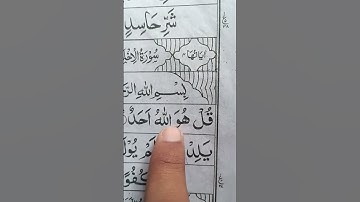 شَرِّ حَاسِدٍ
اٰيَاتُهَا سُوْرَةُ الْاِخْلَ
بِسْمِ اللّٰهِ الرَّ
قُلْ هُوَ اللّٰهُ اَحَدٌ
يَلِدْ وَلَمْ يُوْلَ
كُفُوًا